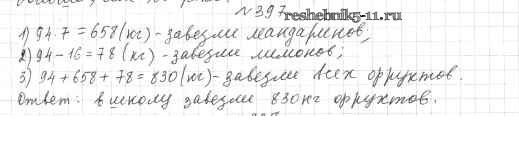 №397
reshebnik5-11.ru
1) 94·7=658(кг)-завезли мандаринов;
2) 94-16=78(кг)-завезли лимонов;
3) 94+658+78=830(кг)-завезли всех фруктов.
Ответ: в школу завезли 830 кг фруктов.